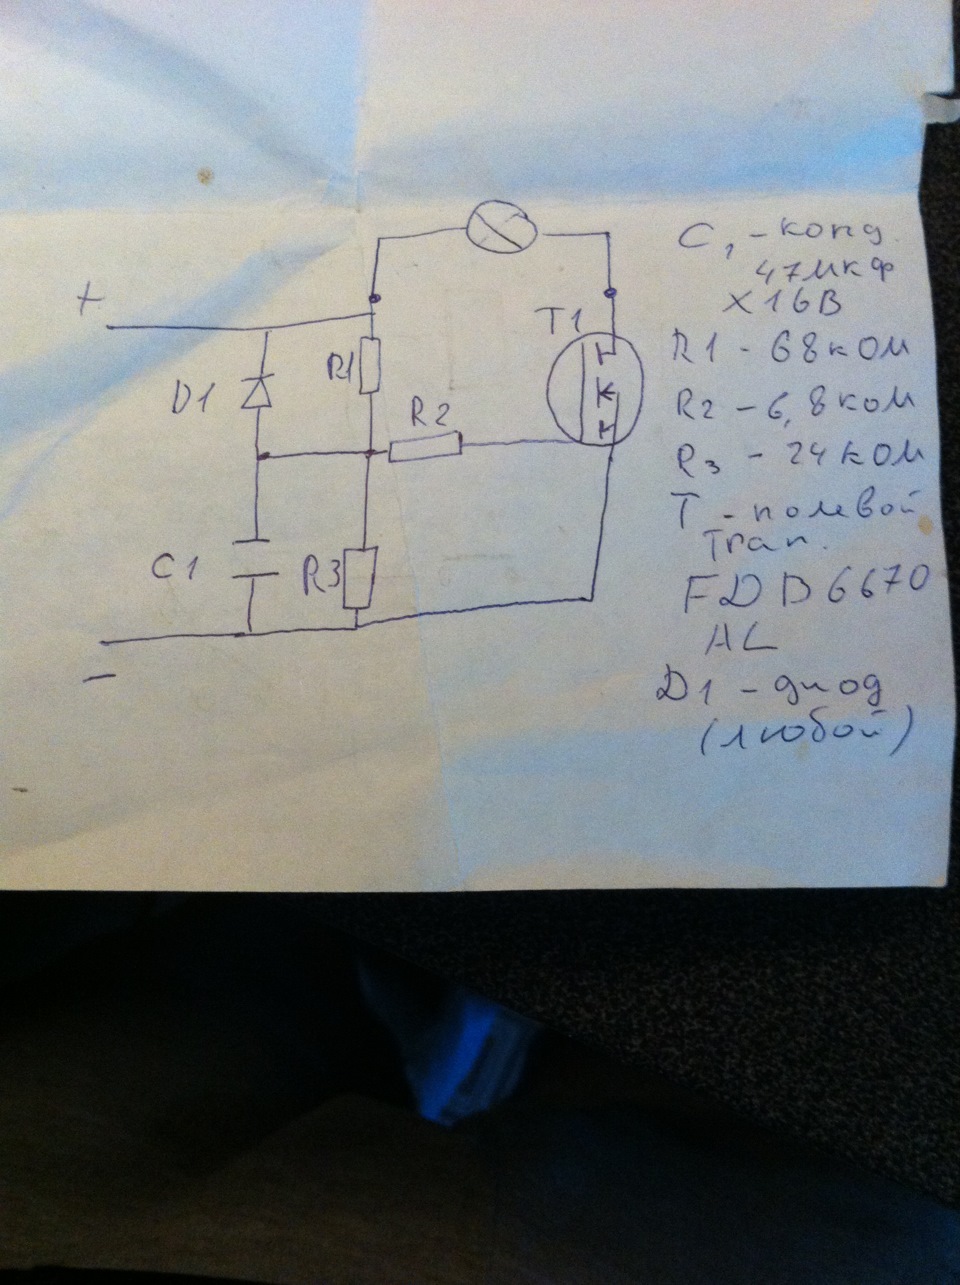 +
D1
R1
R2
T1
C1
R3
−
C1 - конд.
47мкф
х16В
R1 - 68 ком
R2 - 6,8 ком
R3 - 24 ком
T - полевой
тран.
FDD6670
AL
D1 - диод
(любой)